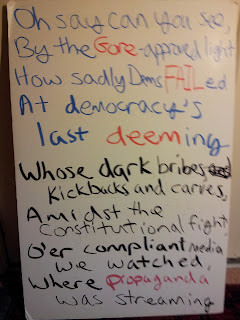 Oh say can you see,
By the Gore-approved light
How sadly Dems FAILed
At democracy's
last deeming
Whose dark bribes
Kickbacks and carves,
Amidst the
Constitutional fight,
O'er compliant media
we watched,
Where propaganda
was streaming